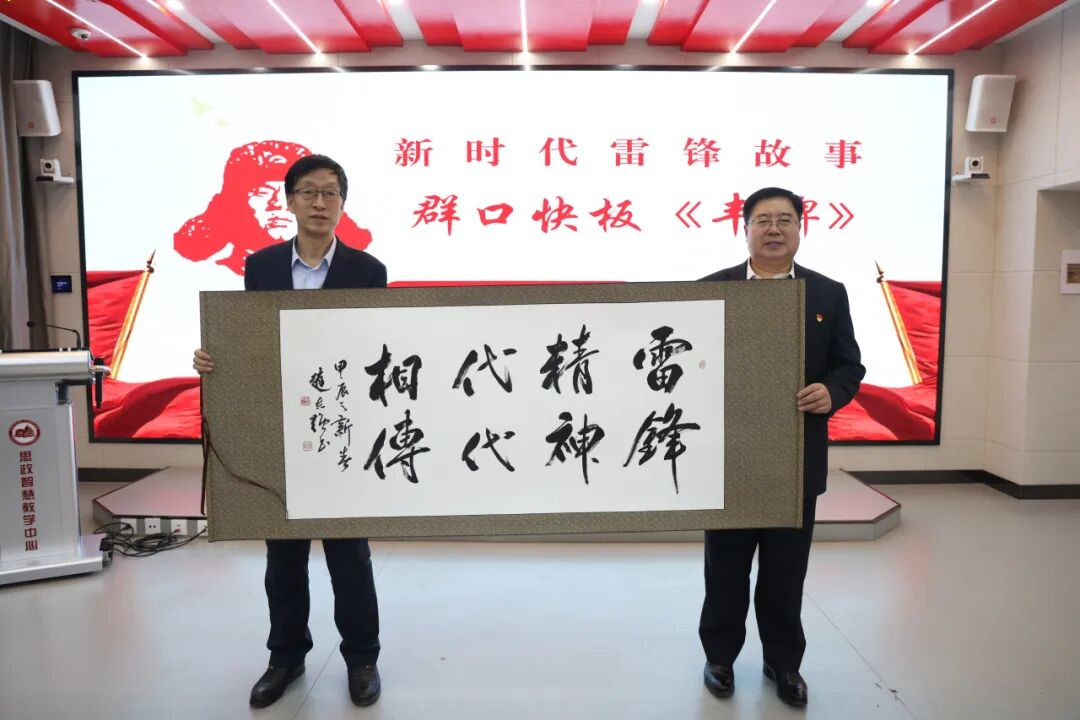 新时代雷锋故事
群口快板《丰碑》
雷鋒
精神
代代
相傳
甲辰之新春
思政智慧教学中心